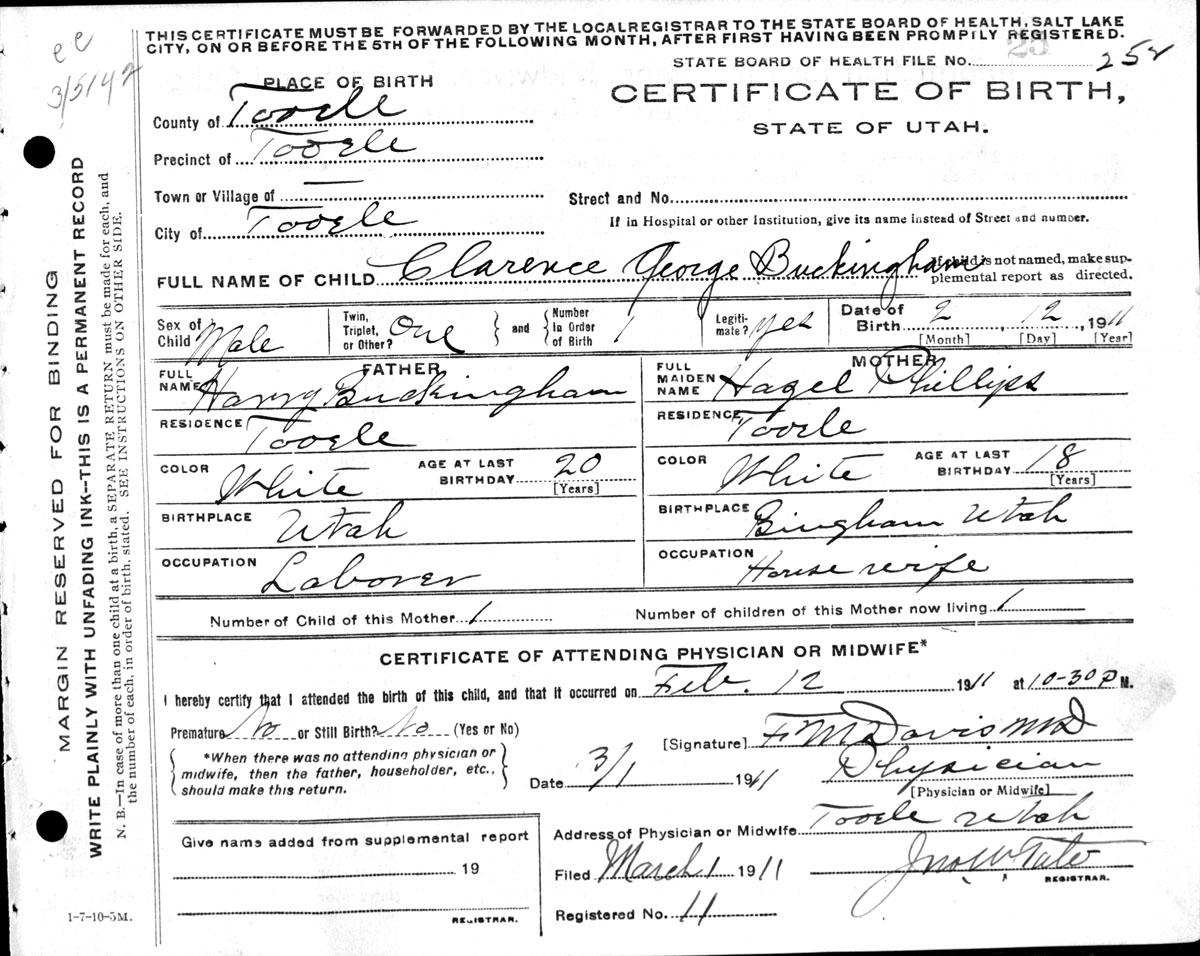 THIS CERTIFICATE MUST BE FORWARDED BY THE LOCALREGISTRAR TO THE STATE BOARD OF HEALTH, SALT LAKE
CITY, ON OR BEFORE THE 5TH OF THE FOLLOWING MONTH, AFTER FIRST HAVING BEEN PROMPTLY REGISTERED.
ec
3/5/42
25
STATE BOARD OF HEALTH FILE No. 252
PLACE OF BIRTH
CERTIFICATE OF BIRTH,
STATE OF UTAH.
County of Tooele
Precinct of Tooele
Town or Village of —
Street and No.
City of Tooele
If in Hospital or other Institution, give its name instead of Street and number.
FULL NAME OF CHILD Clarence George Buckingham
If child is not named, make sup-
plemental report as directed.
Sex of Child Male
Twin, Triplet, or Other? One } and { Number In Order of Birth 1
Legiti-mate? yes
Date of Birth 2, 12, 1911
[Month] [Day] [Year]
FATHER
MOTHER
FULL NAME Harry Buckingham
FULL MAIDEN NAME Hazel Phillips
RESIDENCE Tooele
RESIDENCE Tooele
COLOR White AGE AT LAST BIRTHDAY 20 [Years]
COLOR White AGE AT LAST BIRTHDAY 18 [Years]
BIRTHPLACE Utah
BIRTHPLACE Bingham Utah
OCCUPATION Laborer
OCCUPATION House wife
Number of Child of this Mother 1
Number of children of this Mother now living 1
CERTIFICATE OF ATTENDING PHYSICIAN OR MIDWIFE*
I hereby certify that I attended the birth of this child, and that it occurred on Feb. 12 1911 at 10-30 P M.
Premature No or Still Birth? No (Yes or No)
[Signature] F M Davis MD
*When there was no attending physician or
midwife, then the father, householder, etc.,
should make this return.
Date 3/1 1911
Physician
[Physician or Midwife]
Give name added from supplemental report
19
REGISTRAR.
Address of Physician or Midwife Tooele Utah
Filed March 1 1911
Jno W Tate
REGISTRAR.
Registered No. 11
1-7-10-5M.
MARGIN RESERVED FOR BINDING
WRITE PLAINLY WITH UNFADING INK--THIS IS A PERMANENT RECORD
N. B.—In case of more than one child at a birth, a SEPARATE RETURN must be made for each, and
the number of each, in order of birth, stated. SEE INSTRUCTIONS ON OTHER SIDE.